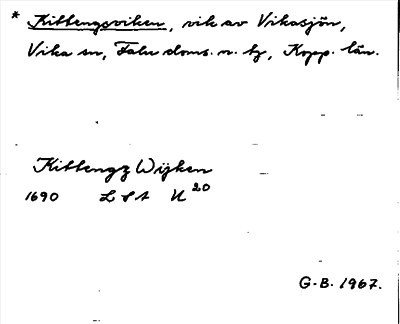 * Kittengsviken, vik av Vikasjön,
Vika sn, Falu doms. n. tg, Kopp. län.
Kittengz Wijken
1690 LSA U 20
G-B. 1967.